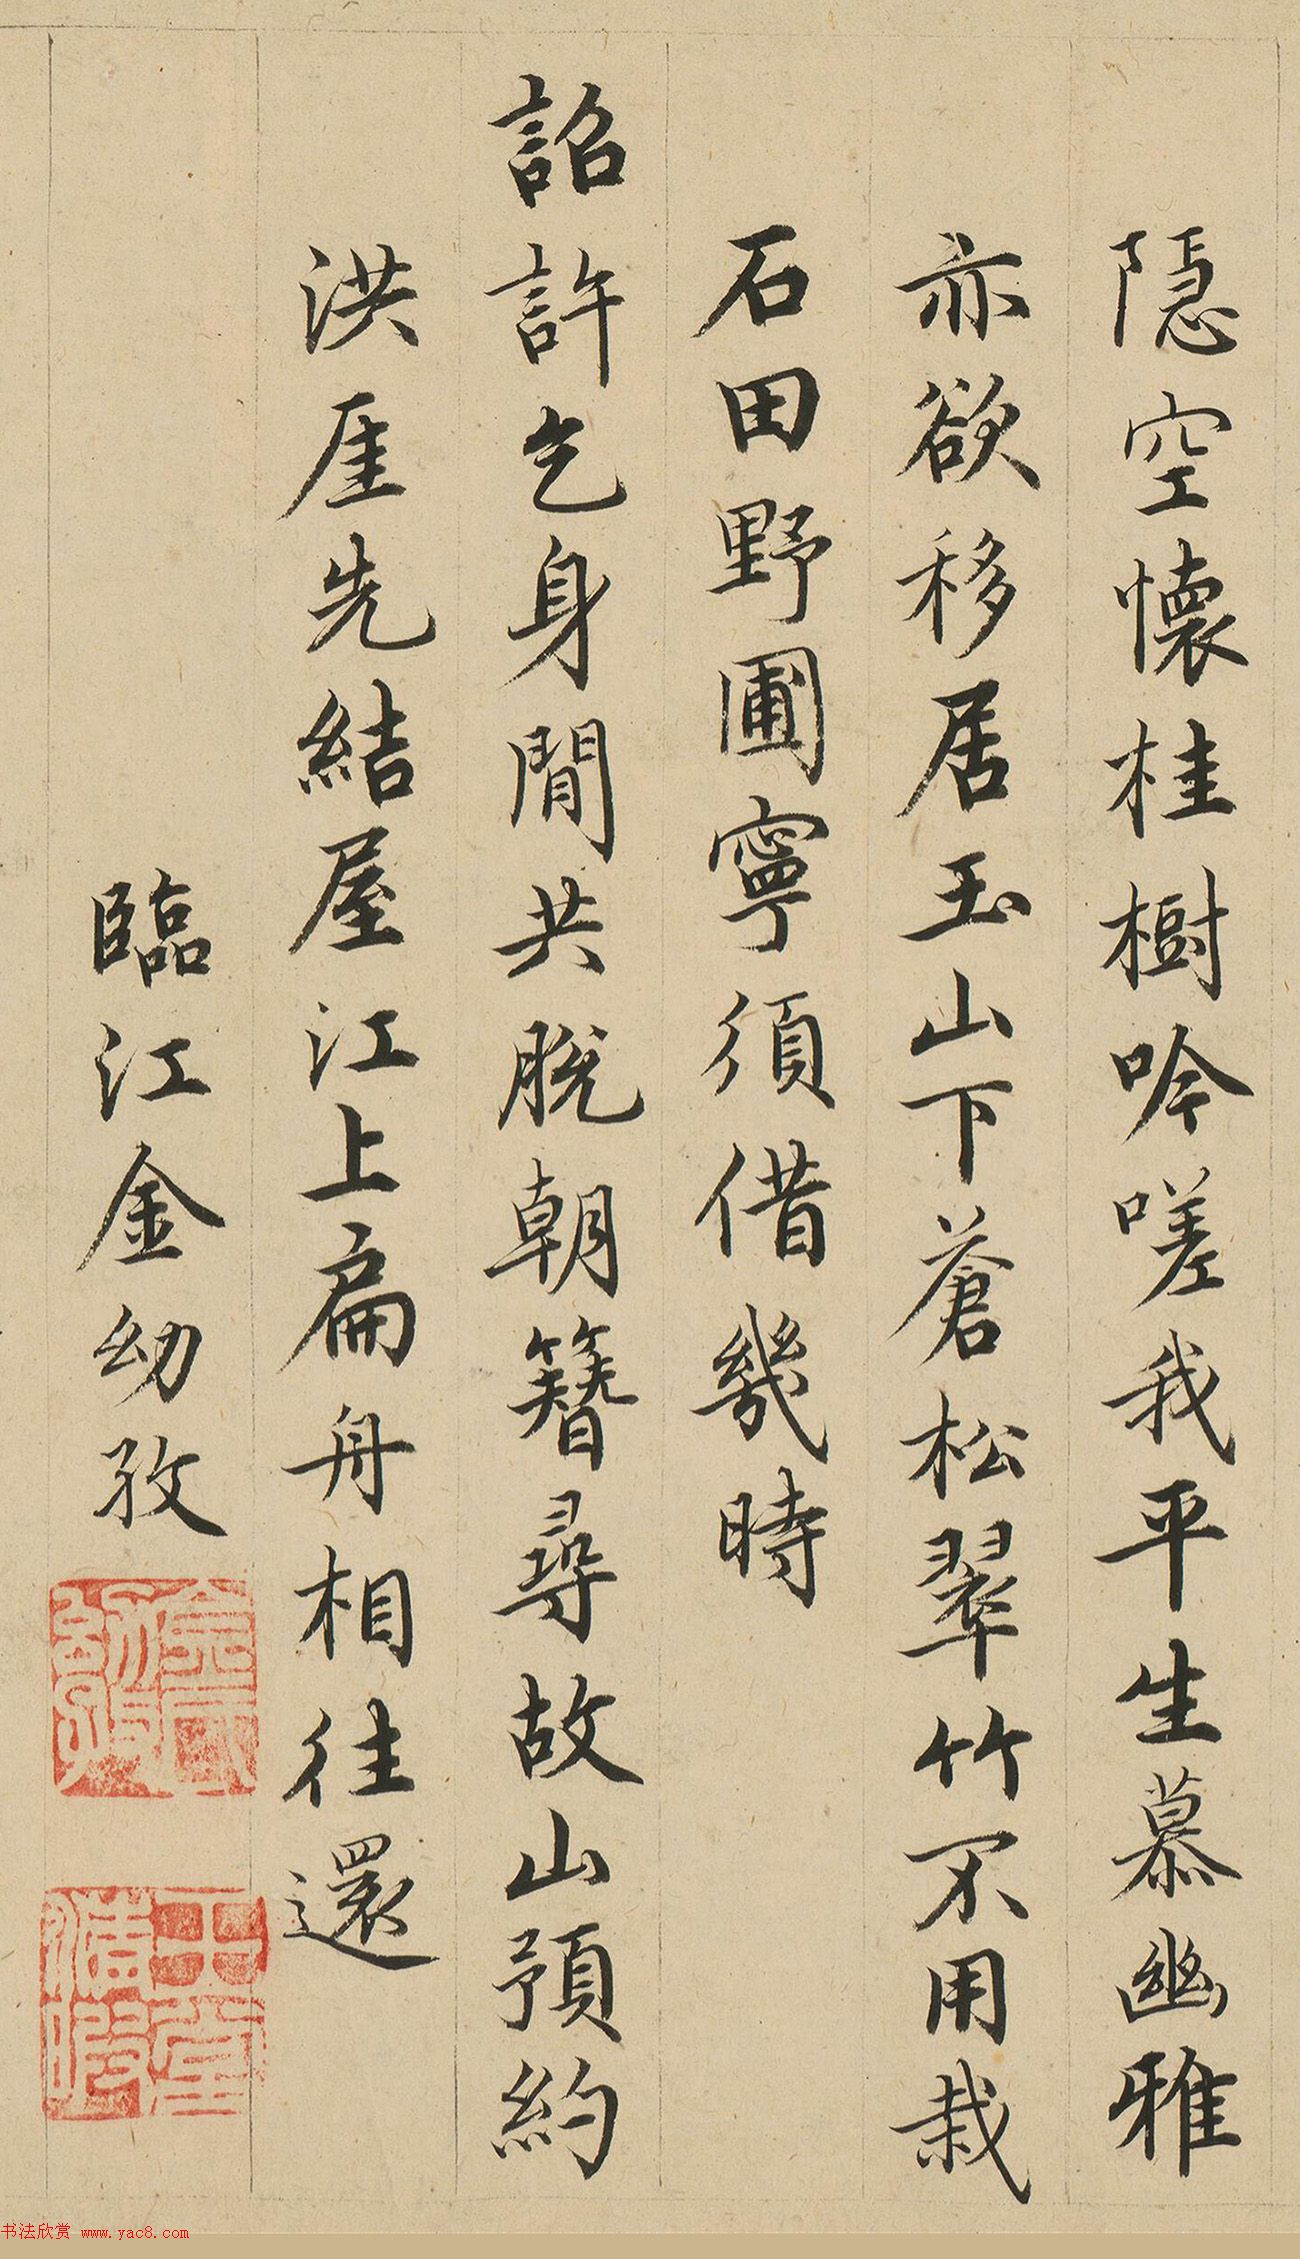 隱空懷桂樹吟嗟我平生慕幽雅
亦欲移居玉山下蒼松翠竹不用栽
石田野圃寧須借幾時
詔許乞身閒共脫朝簪尋故山預約
洪厓先結屋江上扁舟相往還
臨江金幼孜
书法欣赏 www.yac8.com